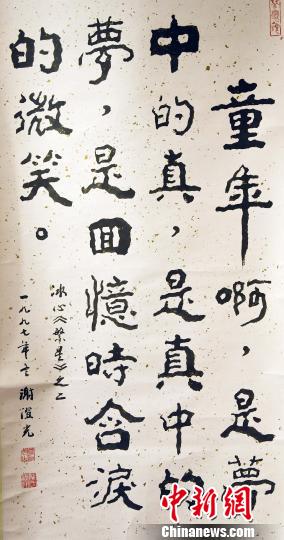 童年啊，是夢
中的真，是真中的
夢，是回憶時含淚
的微笑。
冰心《繁星》之二
一九九七年 謝澄光
中新網
Chinanews.com